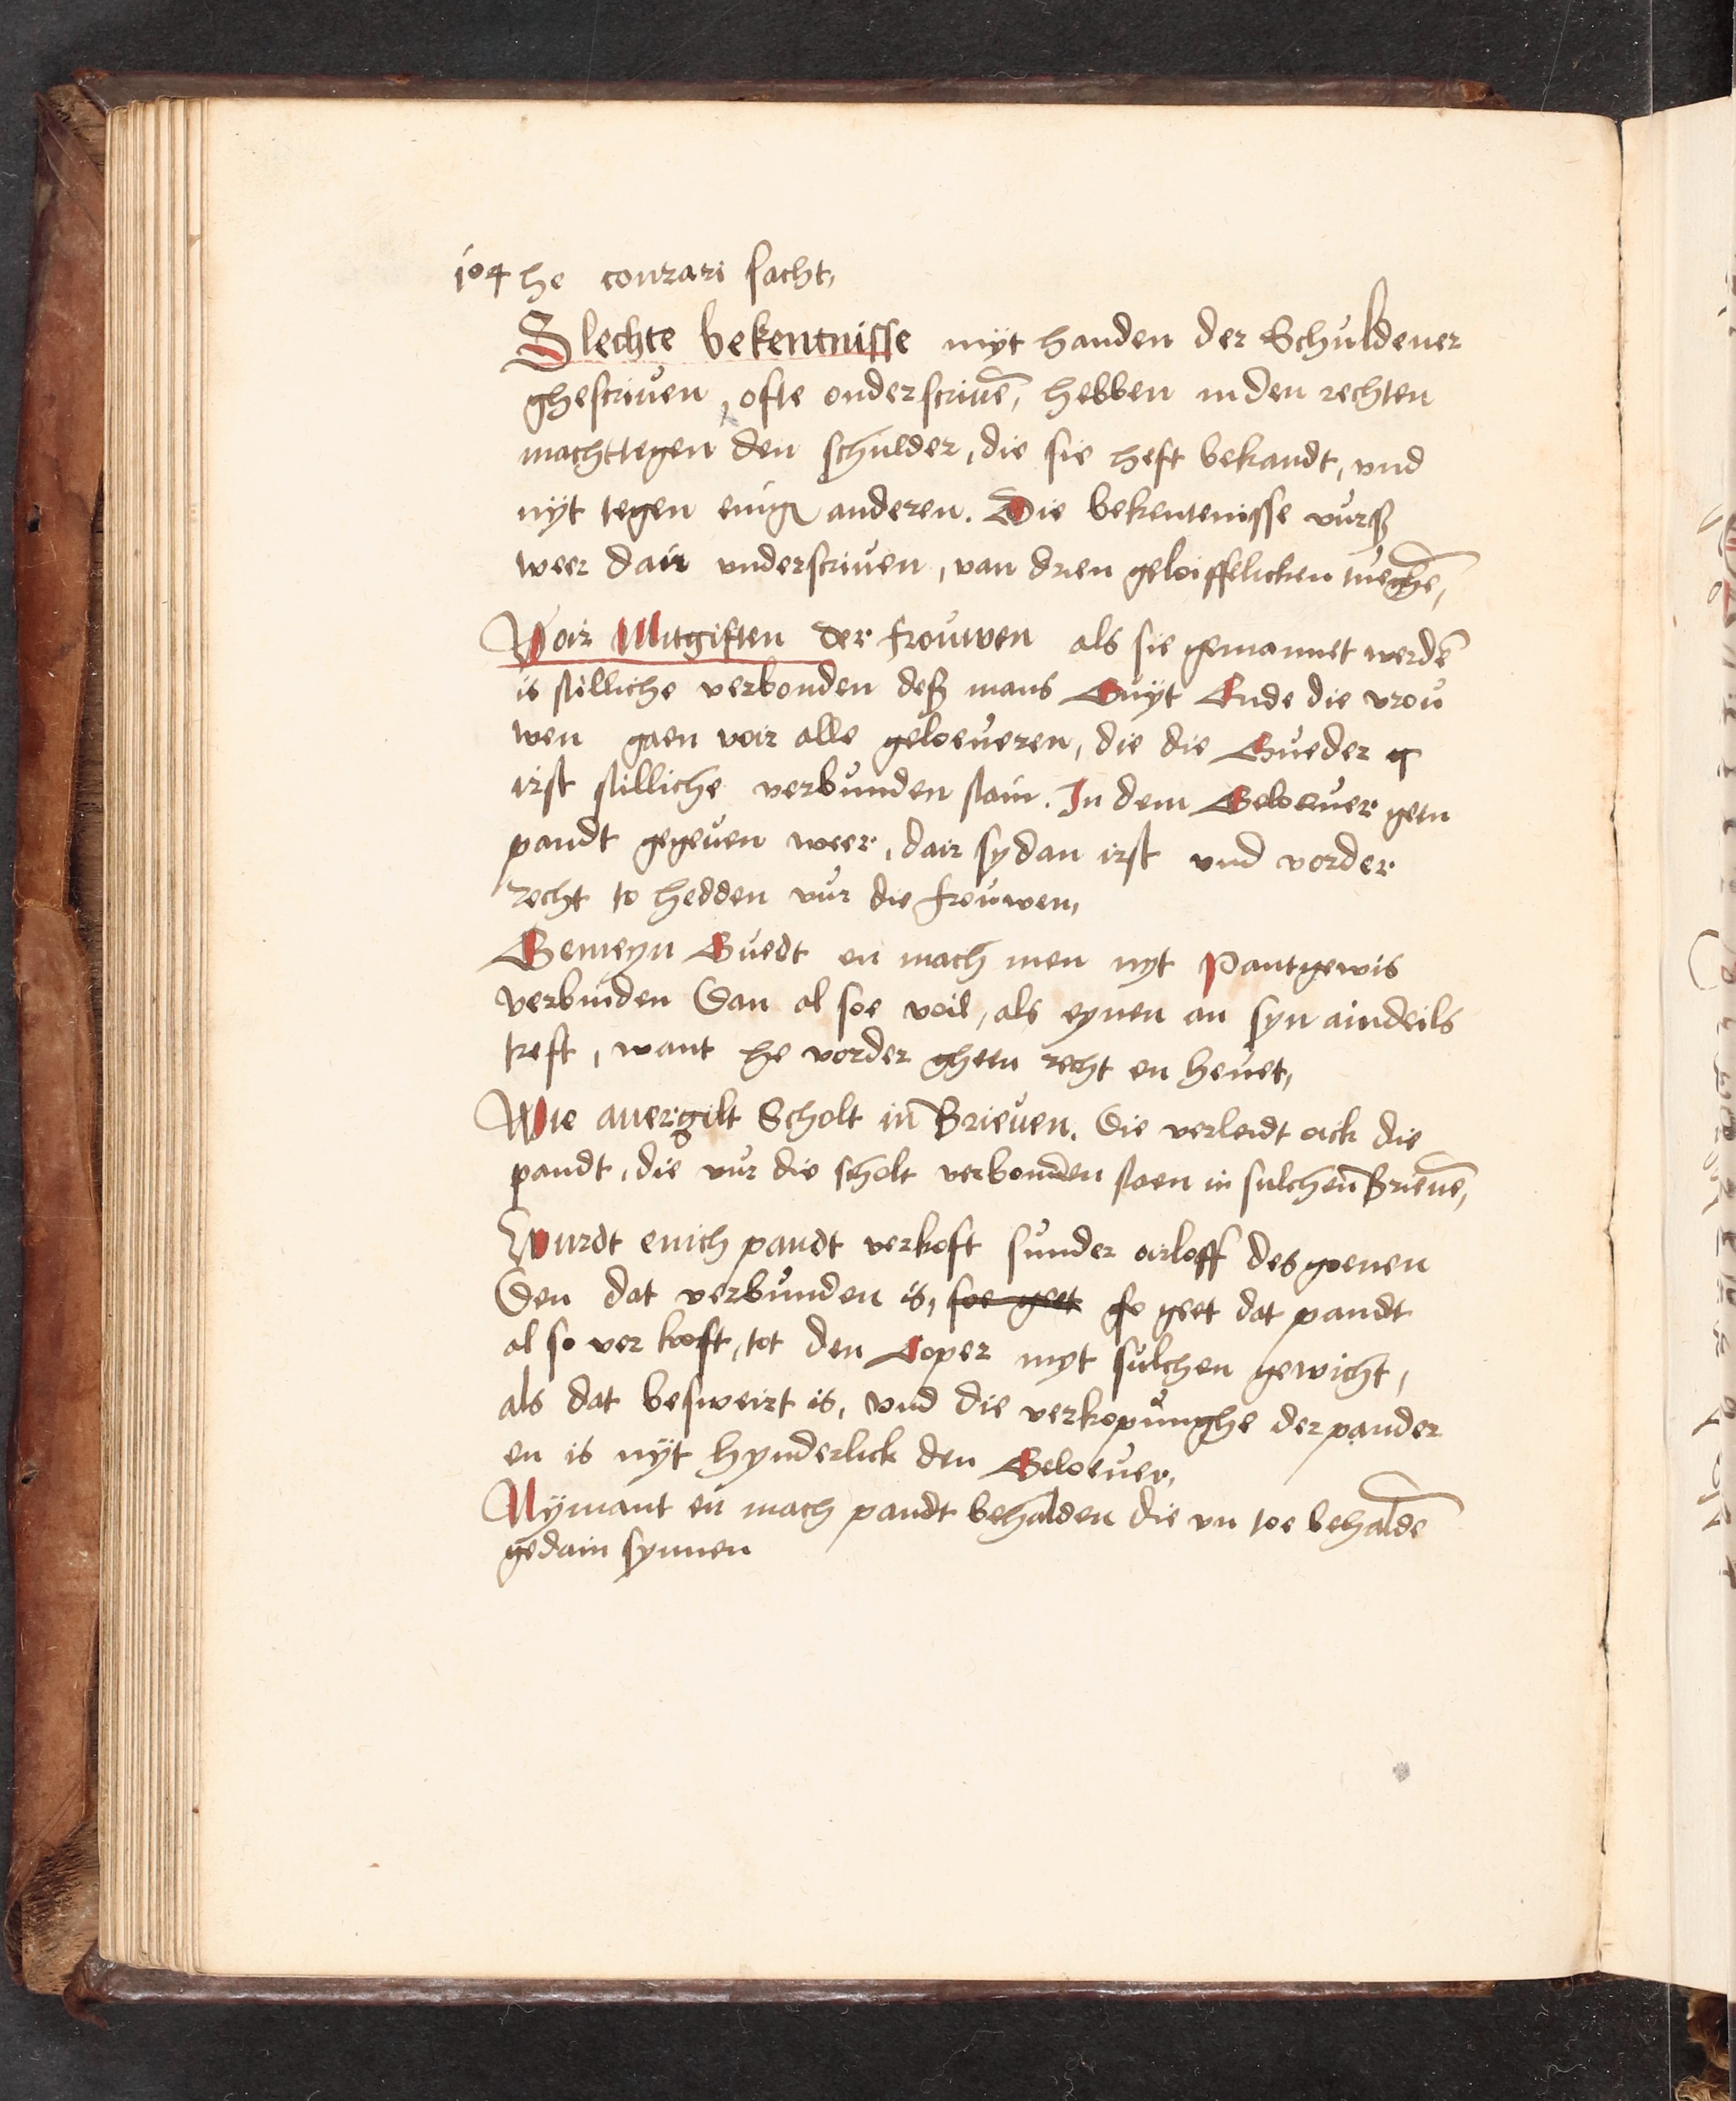 104 he conrari sacht,
Slechte bekentnisse myt handen der Schuldener
ghescriven, ofte onderscrivē, hebben in den rechten
macht tegen den schulder, die sie heft bekandt, vnd
nyt tegen enige anderen. Die bekentenisse vurß
weer dair vnderscriven, van drien geloiffelicken tueghē,
Voir Mitgiften der frouwen als sie gemannet werdē
is stilliche verbonden deß mans Guyt Ende die vrou
wen gaen voir alle geloeveren, die die Gueder
irst stilliche verbunden stain. In dem Geloever gein
pandt gegeven weer, dair sy dan irst vnd vorder
recht to hedden vur die frouwen,
Gemeyn Guedt en mach men nyt Pantgewis
verbinden Dan al soe voil, als eynen an syn aindeils
treft, want he vorder ghein recht en hevet,
Wie avergilt Scholt in Brieven. Die verleidt oick die
pandt, die vur die scholt verbonden staen in sulchen Brievē,
Wurdt enich pandt verkoft sunder oirloff des goenen
Den dat verbunden is, soe geet so geet dat pandt
al so ver kooft, tot den Coper myt sulchen gewicht,
als dat besweirt is, vnd die verkopunghe der pander
en is nyt hynderlick den Geloever,
Nymant en mach pandt behalden die vn toe behaldē
gedain synnen